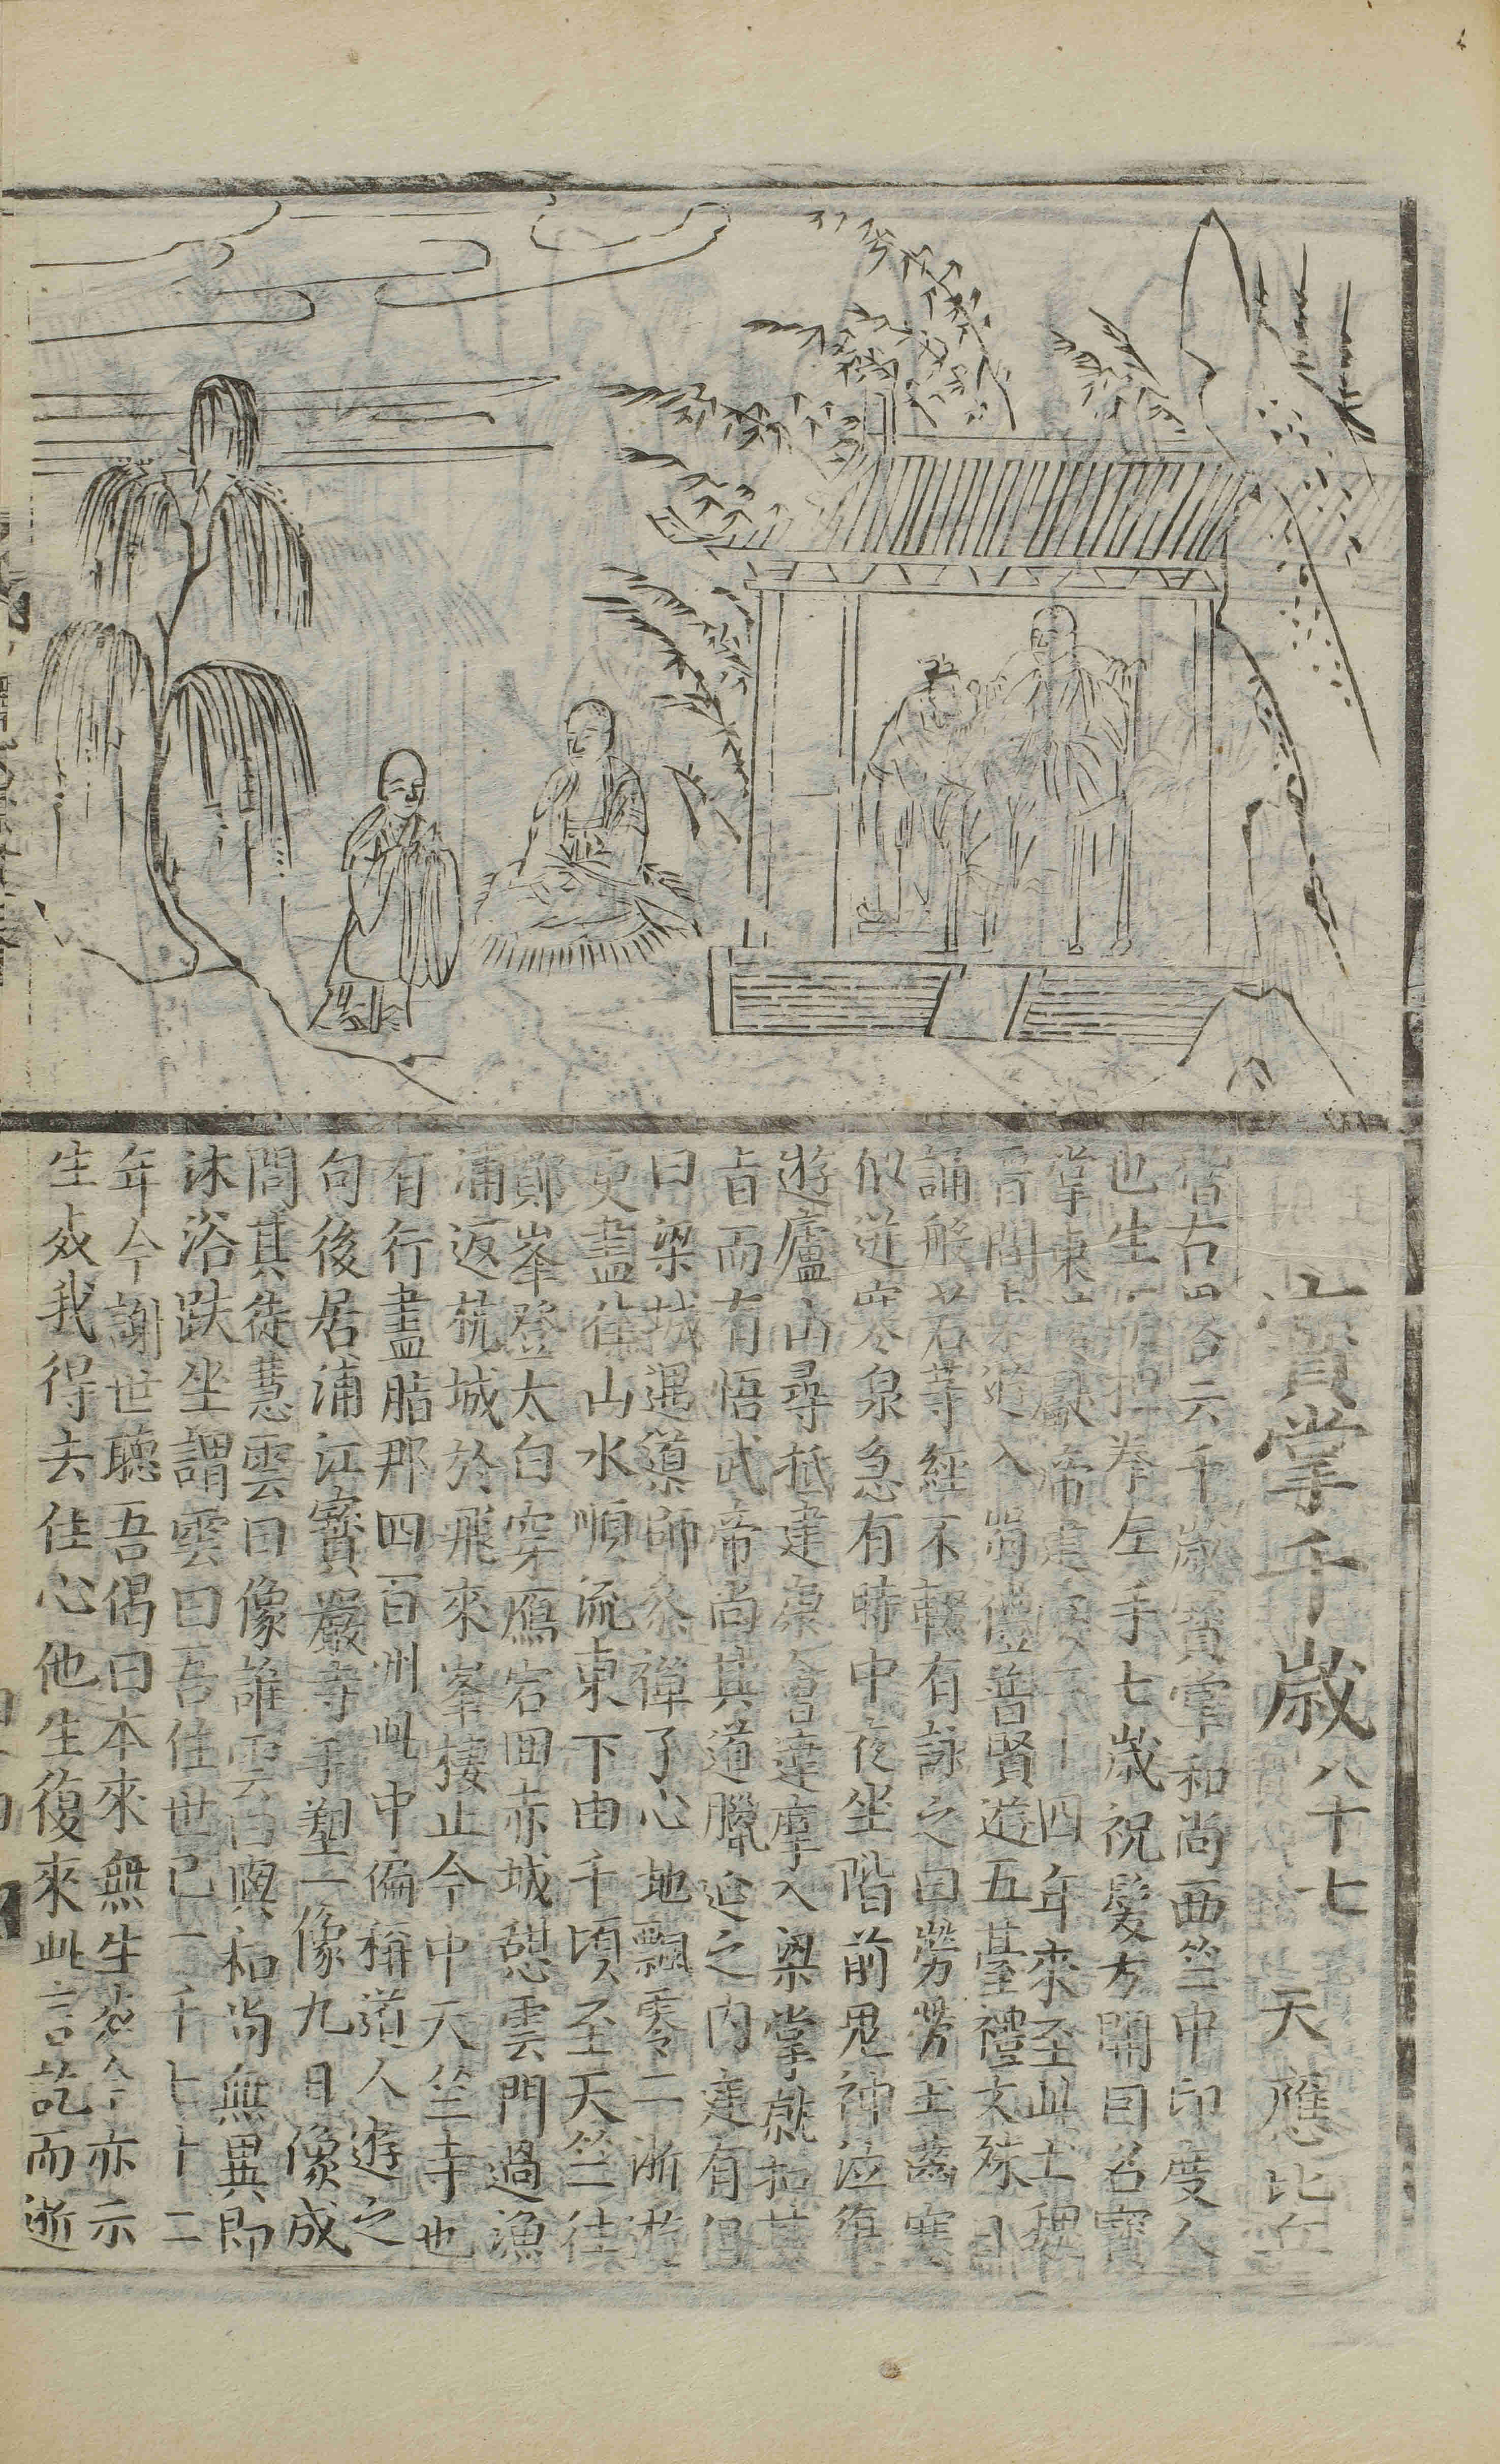 寶掌千歲 八十七 天應比丘
也生 左手七歲祝髮方開目名寶
掌 四年來至此土
入 禮普賢遊五臺禮文殊
誦般若等經不輟有詠之曰勞勞玉齒寒
似迸寒泉急有時中夜坐階前鬼神泣復
遊廬山尋抵建康會達摩入梁掌就扣其
旨而有悟武帝尚其道臘迎之內庭有偈
曰梁城遇導師參禪了心地飄零二浙遊
更盡佳山水順流東下由千頃至天竺往
鄮峯登太白穿鴈宕回赤城憩雲門過漁
浦返杭城於飛來峯棲止今中天竺寺也
有行盡脂那四百州此中徧稱道人遊之
句後居浦江寶嚴寺手塑一像九日像成
問其徒慧雲曰像誰雲曰與和尚無異即
沐浴趺坐謂雲曰吾住世已一千七十二
年今謝世聽吾偈曰本來無生死今亦示
生死我得去住心他生復來此言訖而逝